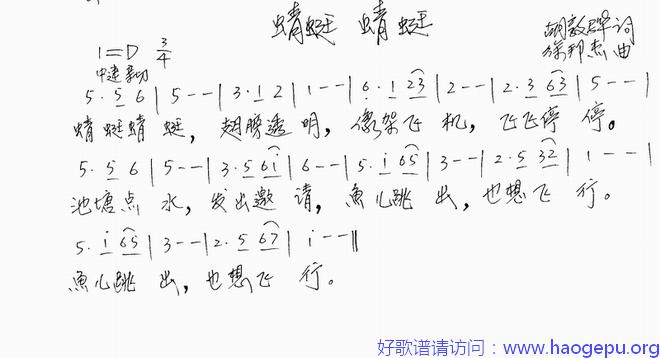 蜻蜓 蜻蜓
胡敦骅 词
1=D 3/4 徐邦杰 曲
中速 亲切
5. 5 6 | 5 - - | 3. 1 2 | 1 - - | 6. 1 23 | 2 - - | 2. 3 63 | 5 - - |
蜻蜓蜻 蜓，翅膀透 明，像架飞 机，飞飞停 停。
5. 5 6 | 5 - - | 3. 5 6i | 6 - - | 5. i 65 | 3 - - | 2. 5 32 | 1 - - |
池塘点 水，发出邀 请，鱼儿跳 出，也想飞 行。
5. i 65 | 3 - - | 2. 5 67 | i - - ‖
鱼儿跳 出，也想飞 行。
好歌谱请访问：www.haogepu.org